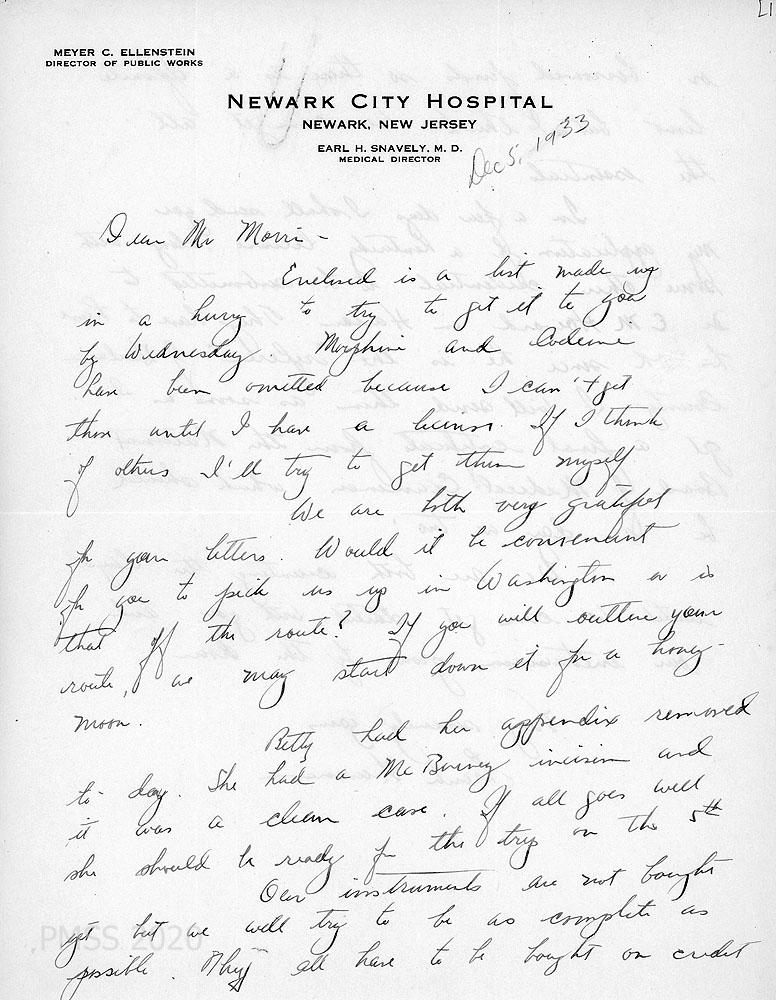 MEYER C. ELLENSTEIN
DIRECTOR OF PUBLIC WORKS
NEWARK CITY HOSPITAL
NEWARK, NEW JERSEY
EARL H. SNAVELY, M. D.
MEDICAL DIRECTOR
Dec 5, 1933
Dear Mr Morris -
Enclosed is a list made up
in a hurry to try to get it to you
by Wednesday. Morphine and Codeine
have been omitted because I can't get
them until I have a license. If I think
of others I'll try to get them myself
We are both very grateful
for your letters. Would it be convenient
for you to pick us up in Washington or is
that off the route? If you will outline your
route, we may start down it for a honey-
moon.
Betty had her appendix removed
to-day. She had a McBurney incision and
it was a clean case. If all goes well
she should be ready for the trip on the 5th
Our instruments are not bought
yet but we will try to be as complete as
possible. They all have to be bought on credit
PMSS 2020